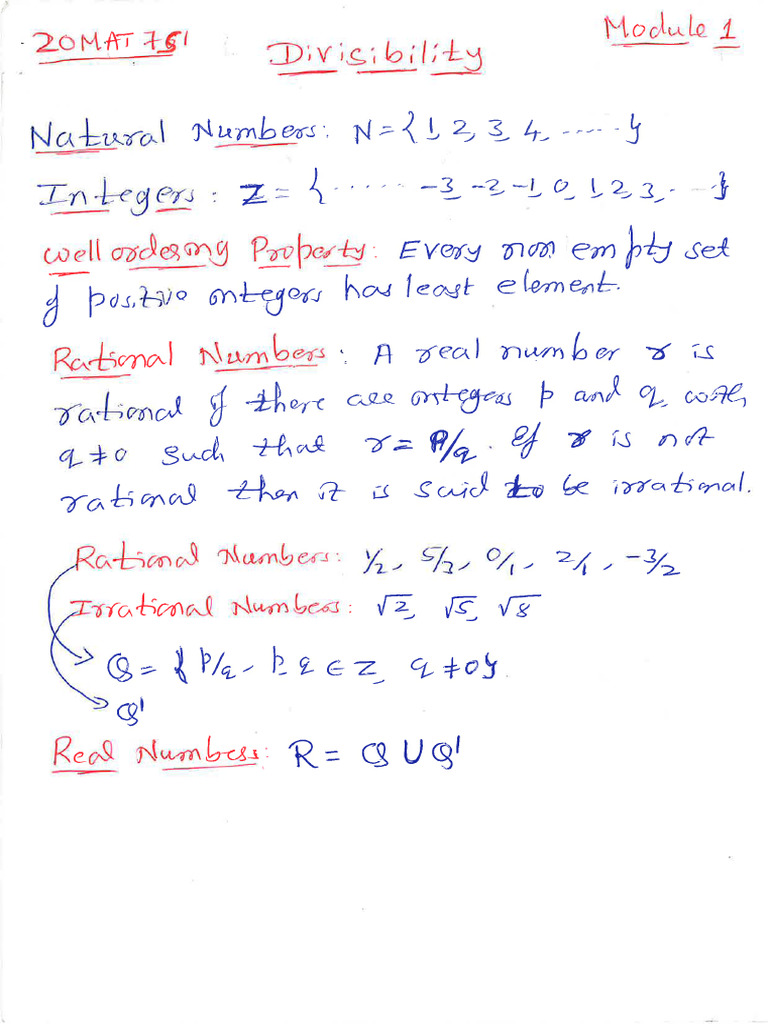 20MAT751 Divisibility Module 1
Natural Numbers: N = {1, 2, 3, 4, ......}
Integers: Z = {...... -3, -2, -1, 0, 1, 2, 3, ...}
Well ordering Property: Every non empty set
of positive integers has least element.
Rational Numbers: A real number r is
rational if there are integers p and q, with
q ≠ 0 such that r = p/q. If r is not
rational then it is said to be irrational.
Rational Numbers: 1/2, 5/3, 0/1, 2/1, -3/2
Irrational Numbers: √2, √5, √8
Q = {p/q, p, q ∈ Z, q ≠ 0}
Q'
Real Numbers: R = Q ∪ Q'